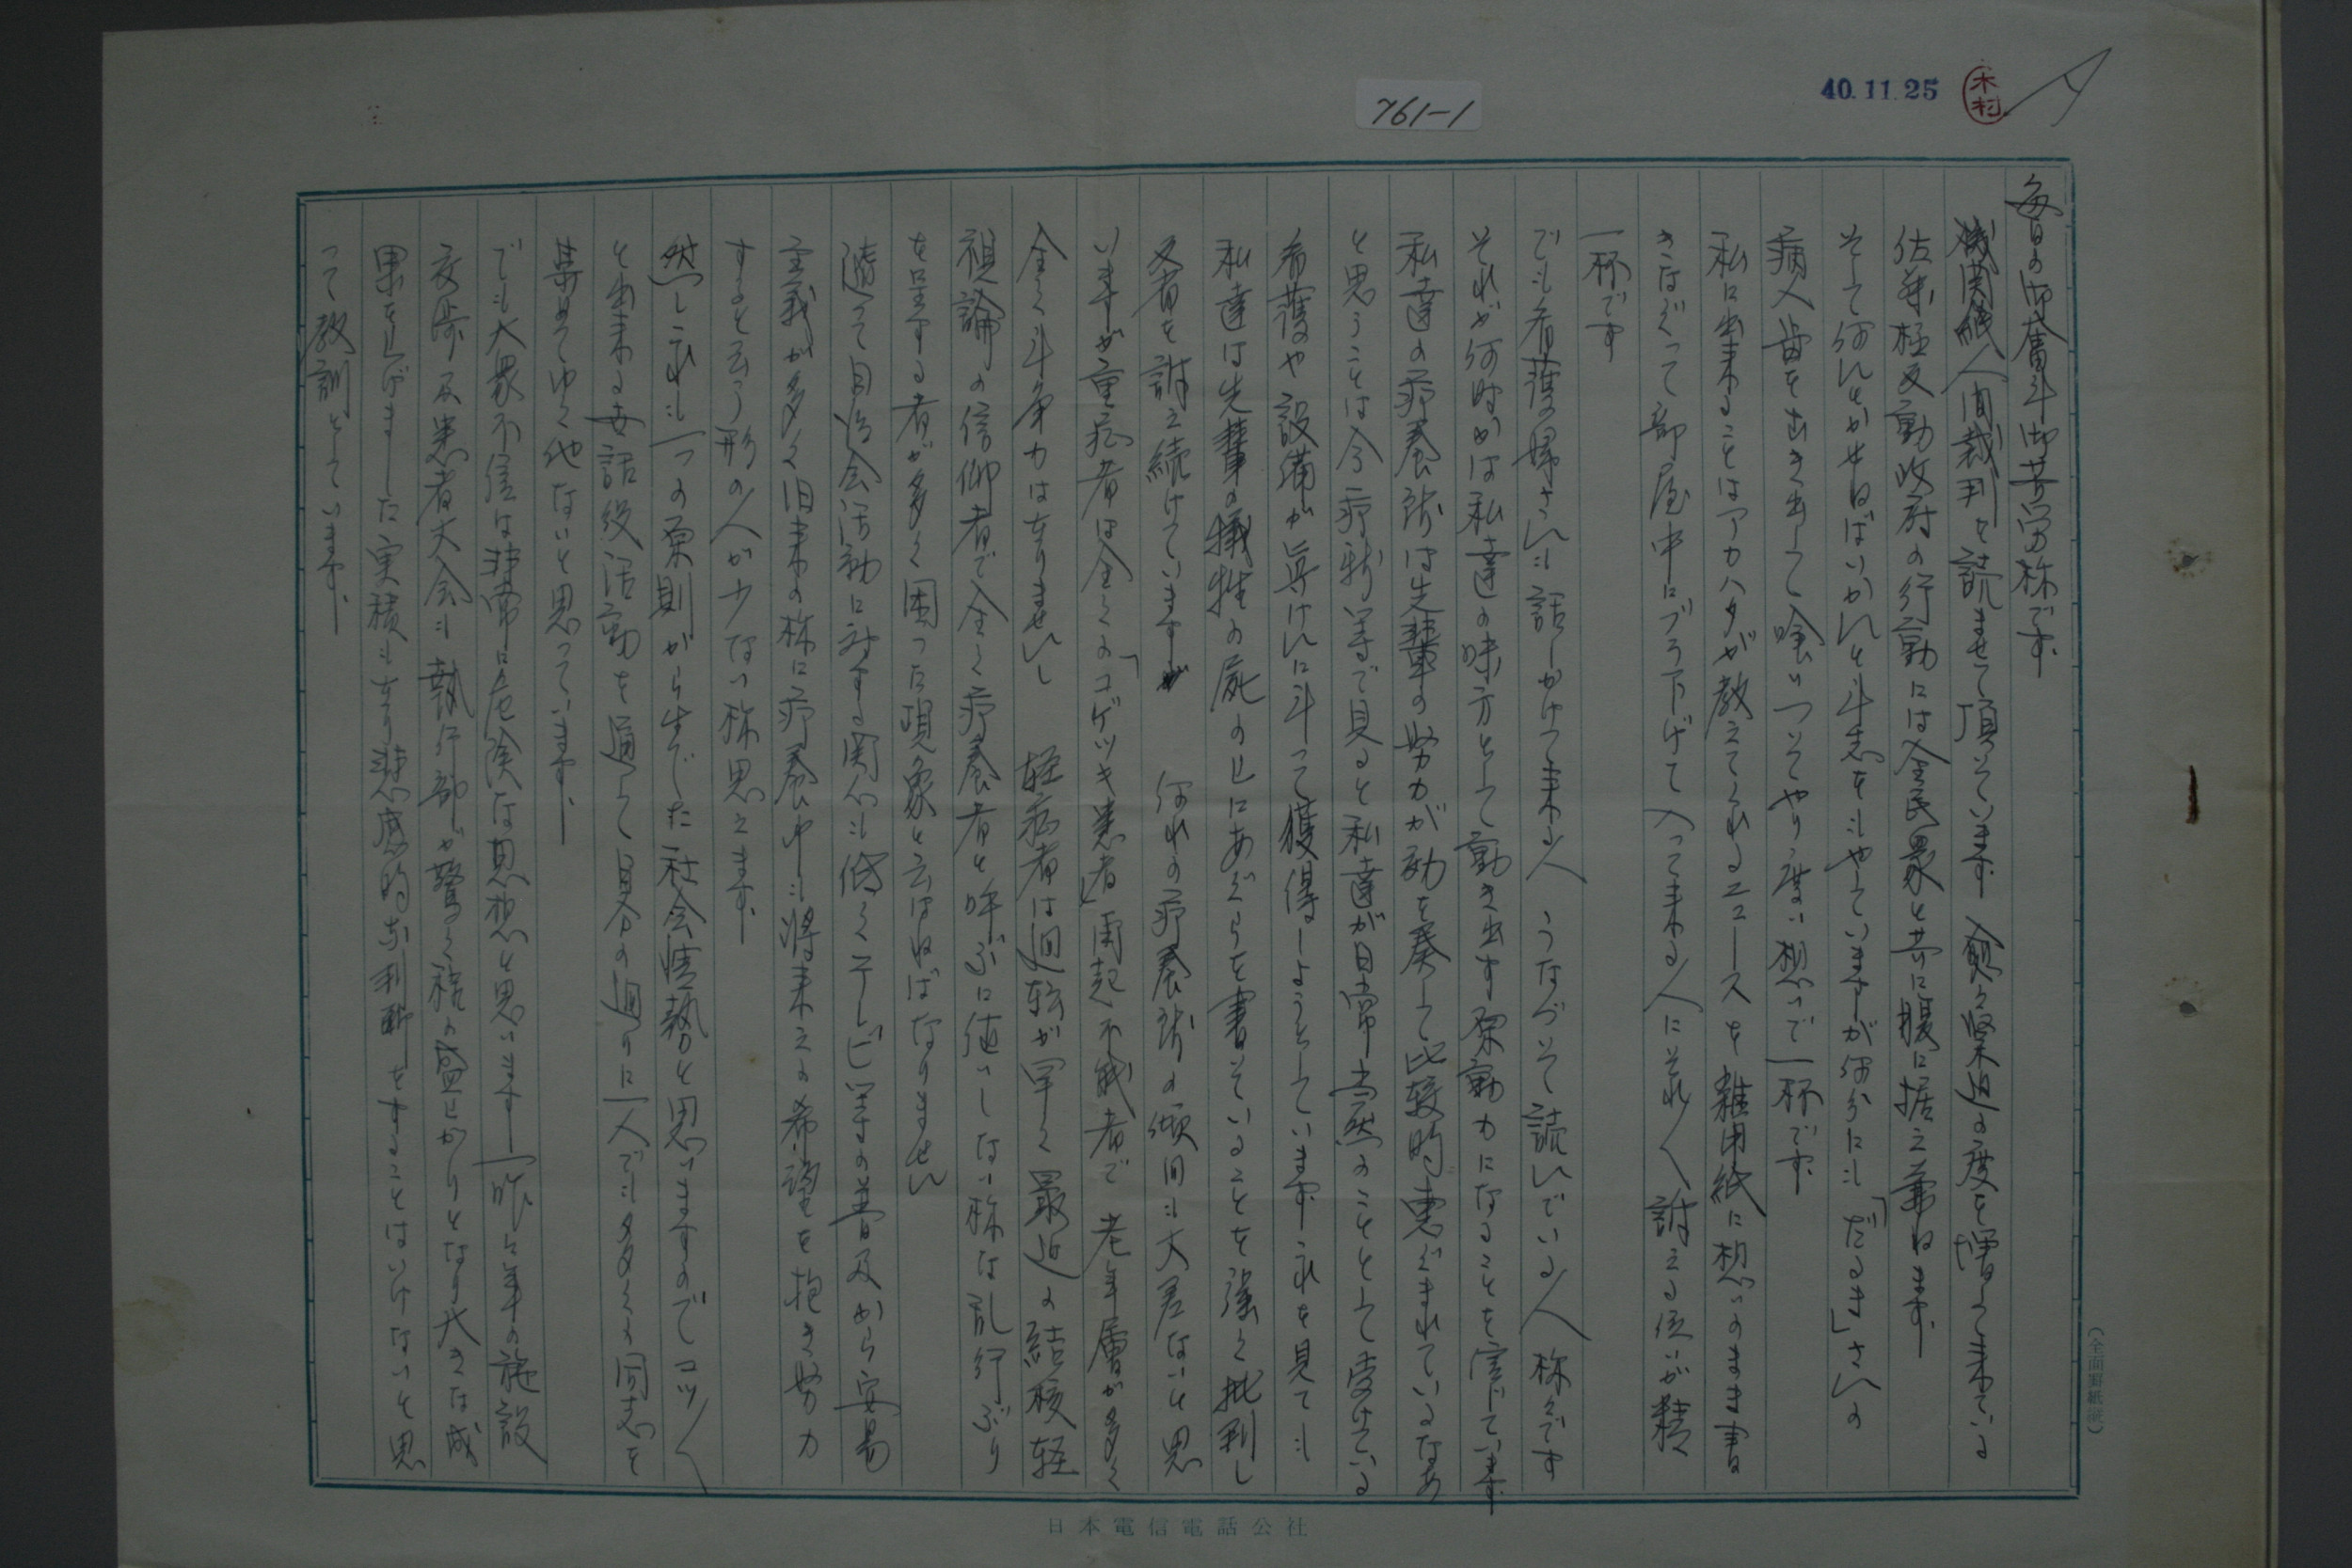 40.11.25
木村
761-1
毎日の御奮斗御苦労様です、
機関紙人間裁判を読ませて頂いています 愈々緊迫の度を増して来ている
佐藤極反動政府の行動には全民衆と共に腹に据え兼ねます、
そして何んとかせねばいかんと斗志をもやしていますが何分にも「だるま」さんの
病人歯を出き出して喰いついてやり度い想いで一杯です、
私に出来ることはアカハタが教えてくれるニュースを雑用紙に想いのまま書
きなぐって部屋中にブラ下げて入って来る人にそれ／＼訴える位いが精
一杯です
でも看護婦さんも話しかけて来る人 うなづいて読んでいる人 様々です
それが何時かは私達の味方として動き出す原動力になることを信じています
私達の療養所は先輩の努力が効を奏して比較的恵ぐまれているなあ
と思うことは今療新等で見ると私達が日常当然のこととして受けている
看護や設備が命がけに斗って獲得しようとしています これを見ても
私達は先輩の犠牲の屍の上にあぐらを書いていることを強く批判し
又者を訴え続けています 何れの療養所の傾向も大差ないと思
いますが重症者は全くの「コゲツキ患者」再起不能者で 老年層が多く
全く斗争力はありませんし 軽病者は廻転が早く最近の結核軽
視論の信仰者で全く療養者と呼ぶに値いしない様な乱行ぶり
を呈する者が多く困った現象と云はねばなりません
従って自治会活動に対する関心も低くテレビ等の普及から安易
主義が多く旧来の様に療養中も将来えの希望を抱き努力
すると云う形の人が少ない様思えます、
然しこれも一つの原則から生でた社会情勢と思いますのでコツ／＼
と出来る世話役活動を通して自分の廻りに一人でも多くの同志を
集めてゆく他ないと思っています、
でも大衆不信は非常に危険な思想と思います 一昨々年の施設
交渉及患者大会も執行部が驚く程の盛上がりとなり大きな成
果を上げました実積もあり悲感的な判断をすることはいけないと思
って教訓としています、
(全面罫紙縦)
日本電信電話公社